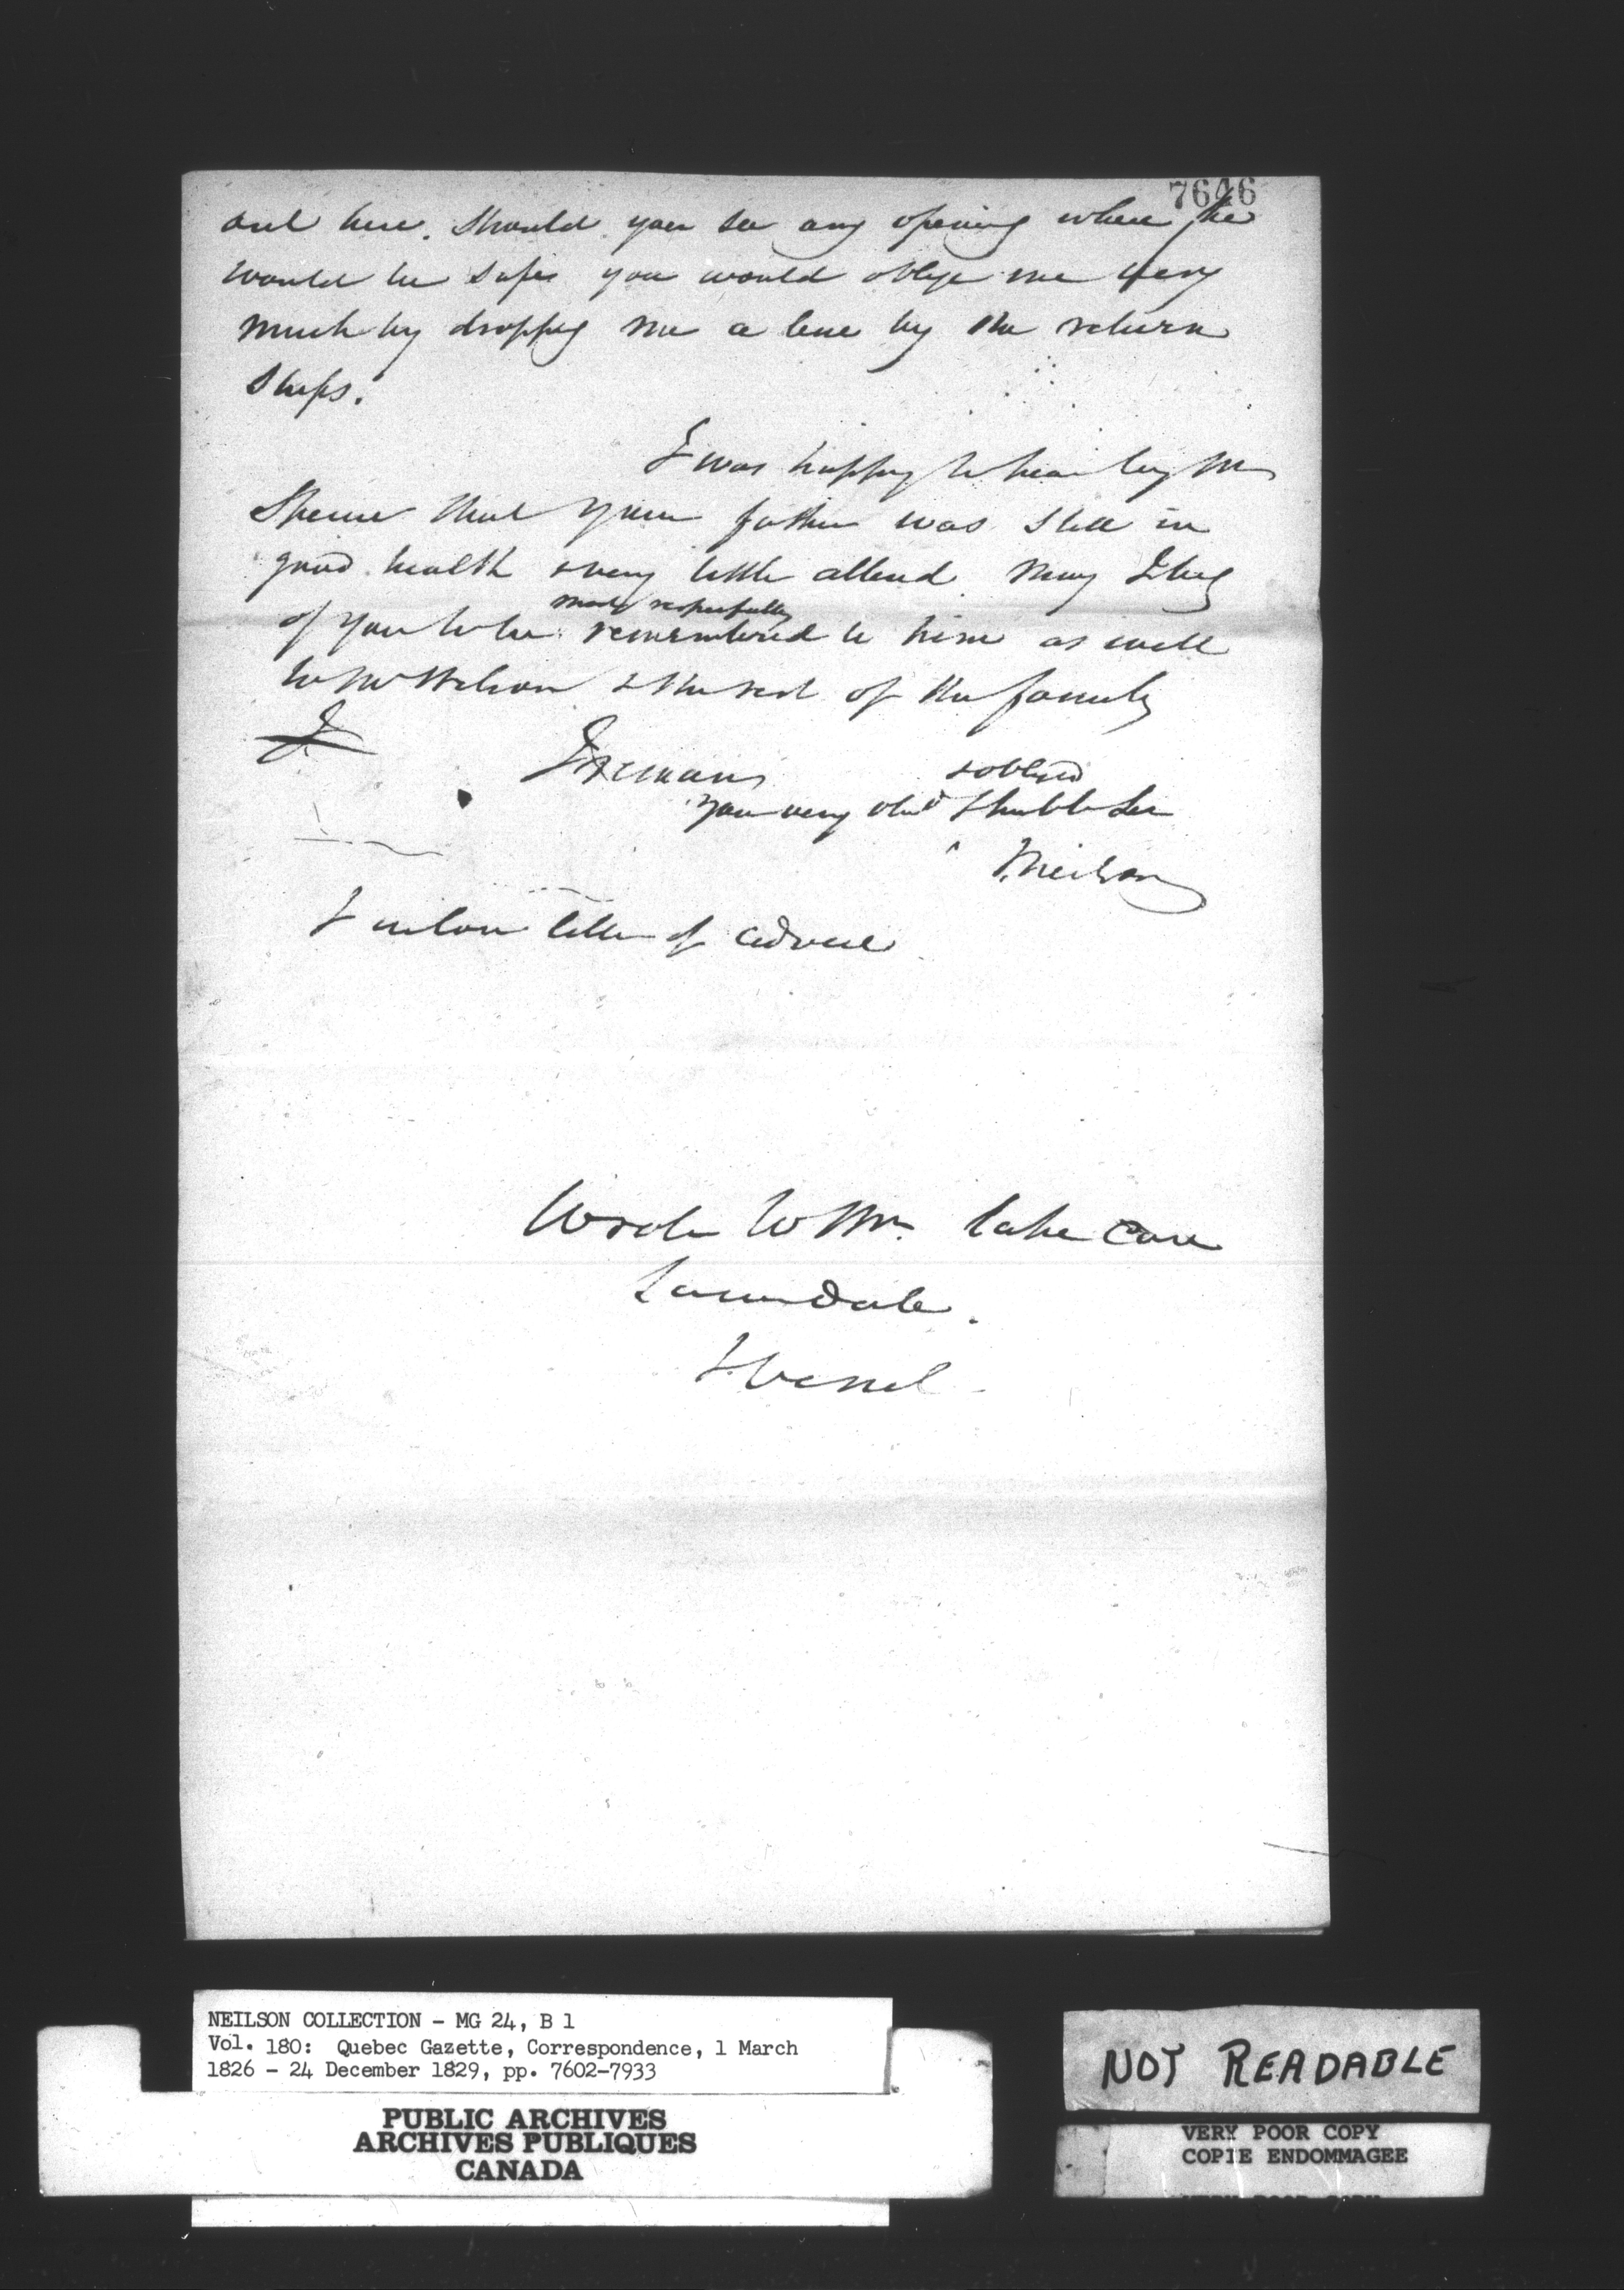 7646
out here. Should you see any opening where he
would be safe you would oblige me very
much by dropping me a line by the return
Ships.
I was happy to hear by Mr
that your father was still in
good health & very little altered. May I beg
most respectfully
of you to be remembered to him as well
to Mr & the rest of the family
I
I remain
& obliged
Your very obt & humble Ser
Neilson
letter of advice
Wrote to Mr. take care
NEILSON COLLECTION - MG 24, B 1
Vol. 180: Quebec Gazette, Correspondence, 1 March
1826 - 24 December 1829, pp. 7602-7933
PUBLIC ARCHIVES
ARCHIVES PUBLIQUES
CANADA
NOT READABLE
VERY POOR COPY
COPIE ENDOMMAGEE